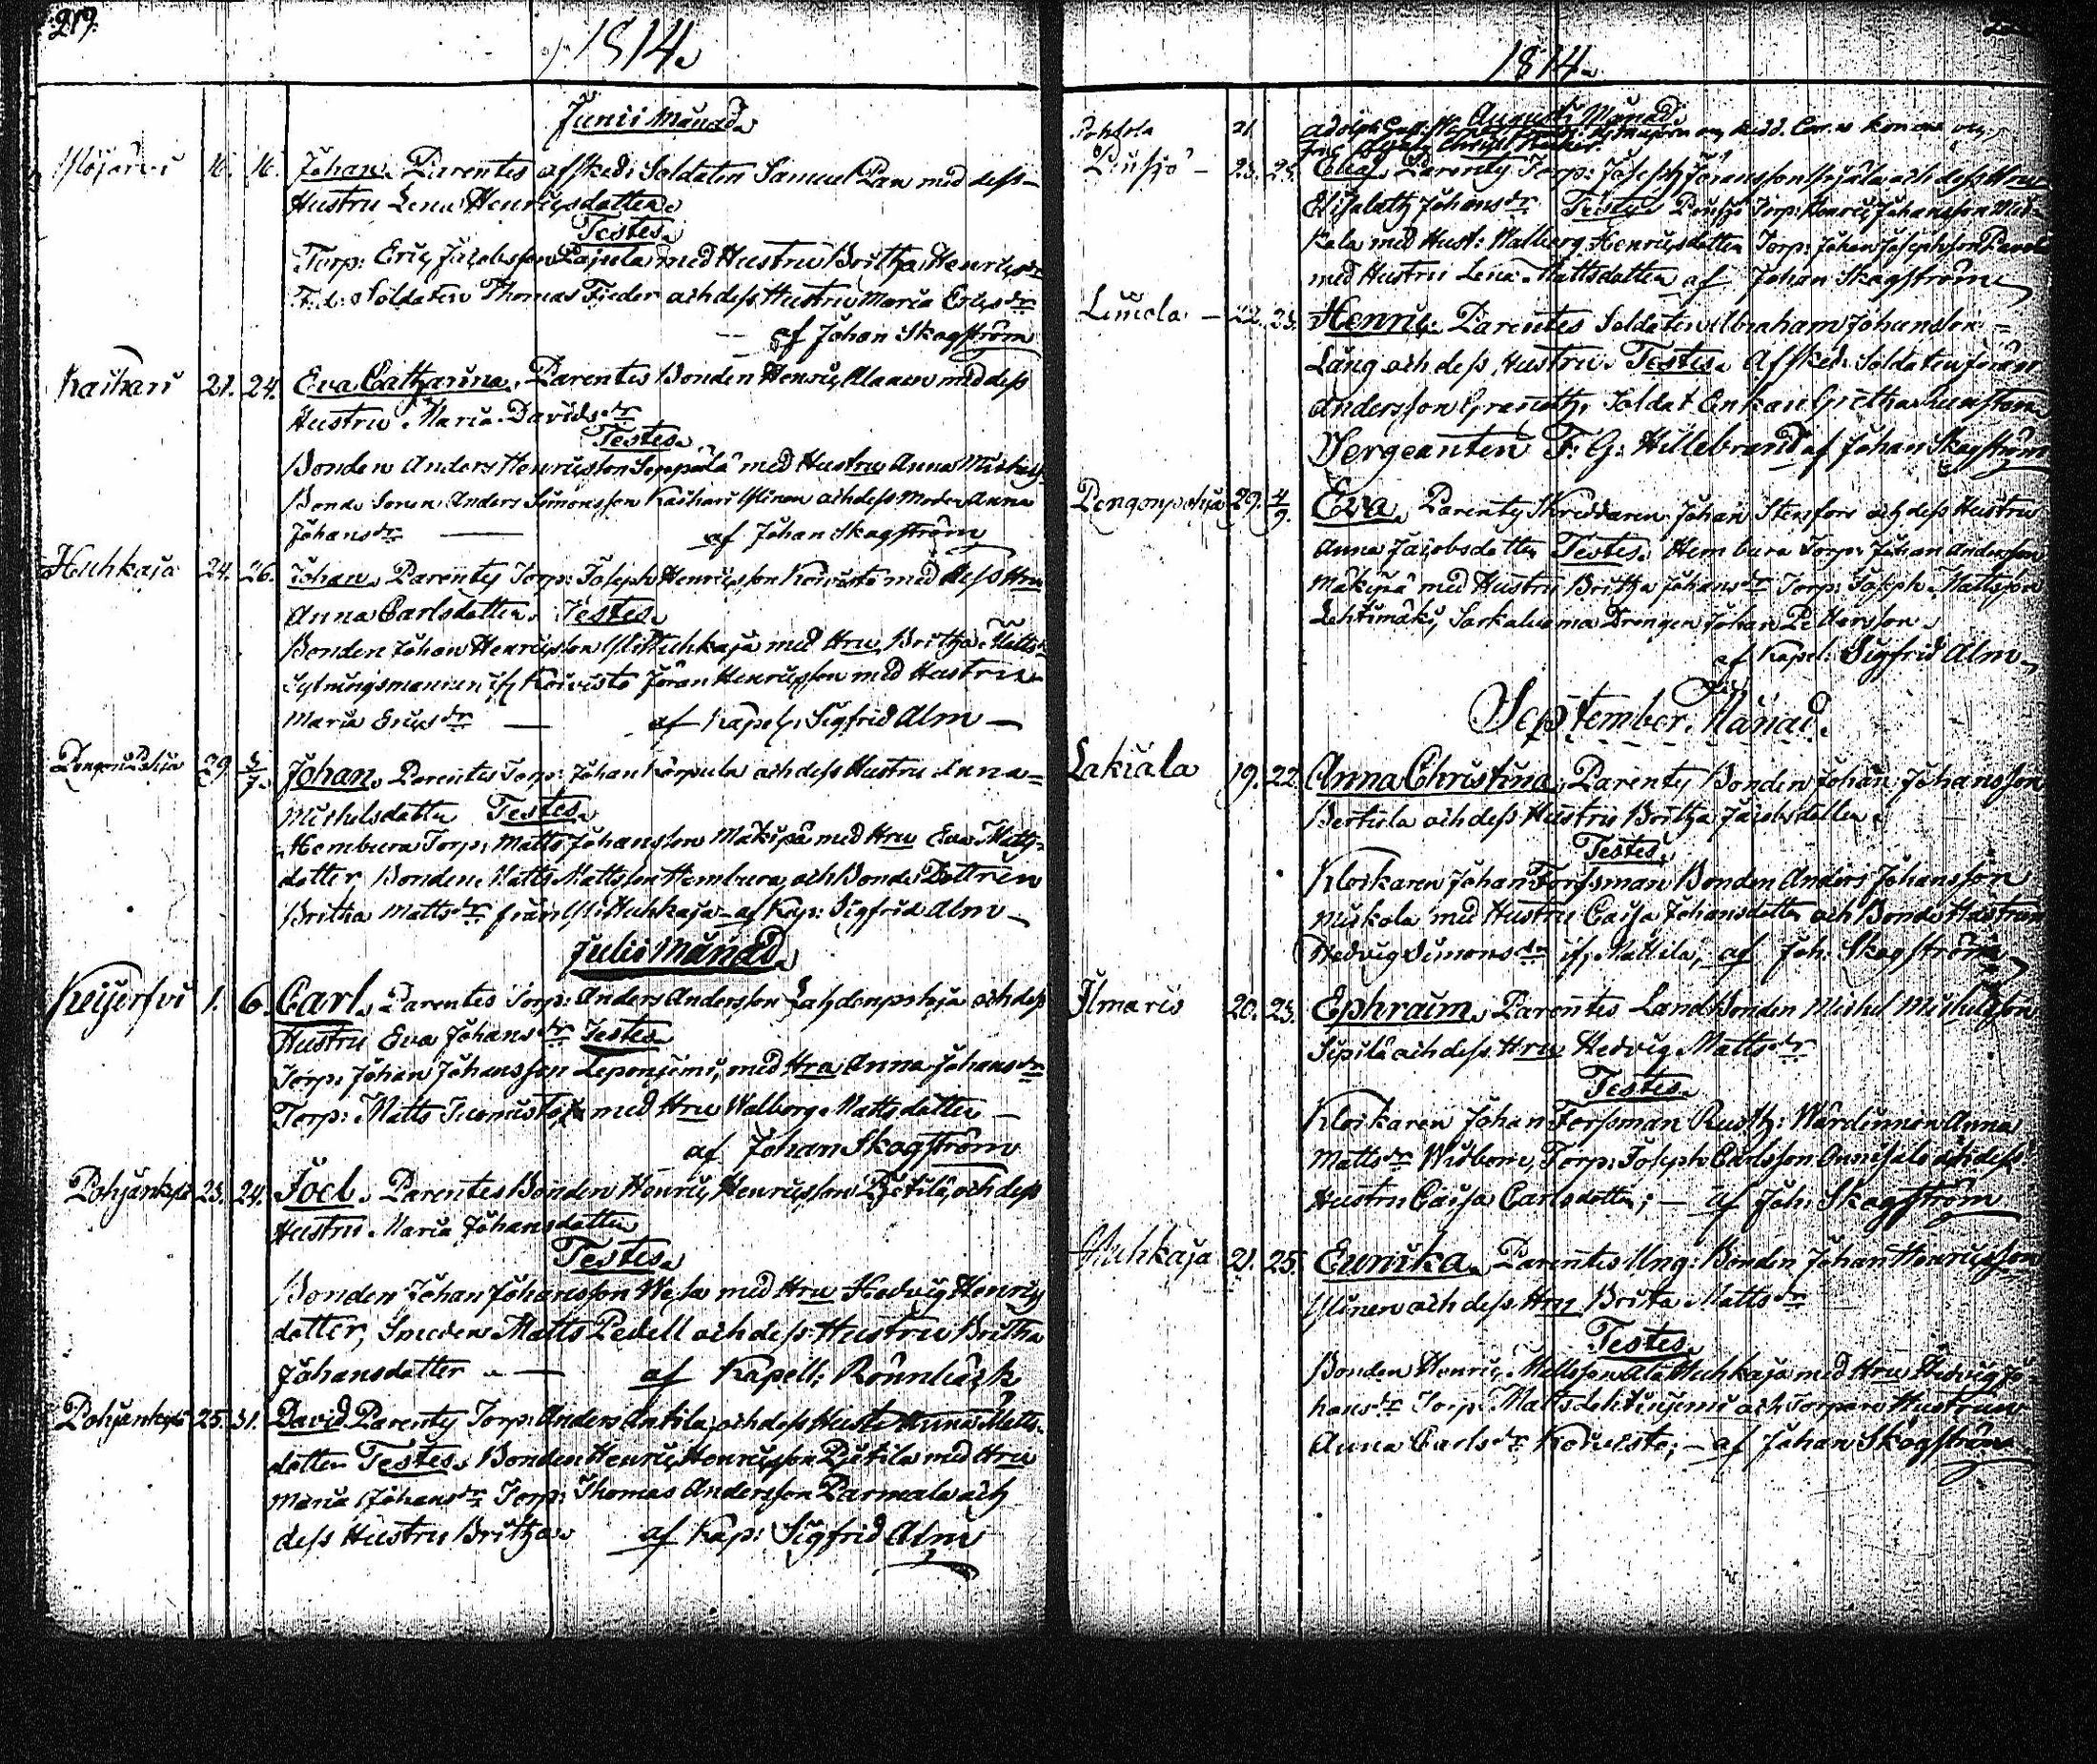 219.
1814.
Junii Månad.
16. 16. Johan. Parentes afsked: Soldaten Samuel Pan med dess
Hustru Lena Henricsdotter.
Testes.
Torp: Eric Jacobsson Pajula med Hustru Britha Henricsdr
F.d. Soldaten Thomas Fieder och dess Hustru Maria Ericsdr
af Johan Skogström
Kaihari 21. 24. Eva Catharina. Parentes Bonden Henric Alanen med dess
Hustru Maria Davidsdr
Testes.
Bonden Anders Henricsson Seppälä med Hustru Anna Michels
Bonde Sonen Anders Simonsson Kaihari och dess Moder Anna
Johansdr — af Johan Skogström
Huhkaja 24. 26. Johan. Parentes Torp: Joseph Henricsson Koivisto med dess Hru
Anna Carlsdotter. Testes.
Bonden Johan Henricsson Huhkaja med Hru Britha Matts
Sytningsmannen ifr Koivisto Jöran Henricsson med Hustru
Maria Ericsdr — af Kapel: Sigfrid Alm —
29. 3/7. Johan. Parentes Torp: Johan Korpula och dess Hustru Anna
Michelsdotter Testes.
Hembura Torp: Matts Johansson Mäkipä med Hru Eva Matts
dotter, Bonden Matts Mattsson Hembura, och Bonde Dottren
Britha Mattsdr från Huhkaja — af Kap: Sigfrid Alm —
Julii Månad.
1. 6. Carl. Parentes Torp: Anders Andersson och dess
Hustru Eva Johansdr Testes
Torp: Johan Johansson Leponiemi, med Hru Anna Johansdr
Torp: Matts med Hru Walborg Mattsdotter —
af Johan Skogström
23. 24. Joel. Parentes Bonden Henric Henricsson Pietilä, och dess
Hustru Maria Johansdotter
Testes.
Bonden Johan Johansson Wesa med Hru Hedvig Henrics
dotter, Smeden Matts Pedell och dess Hustru Britha
Johansdotter — af Kapell: Rönnbäck
25. 31. David Parentes Torp: Anders Antila, och dess Hustru Anna Matts
dotter Testes. Bonden Henric Henricsson Pietila med Hru
Maria Johansdr Torp: Thomas Andersson Parmala och
dess Hustru Britha. af Kap: Sigfrid Alm
1814.
Augusti Månad.
Pohjola 21.
23. 25. Elias. Parentes Torp: Joseph Jöransson och dess Hru
Elisabeth Johansdr Testes Torp: Henric Johansson
kala med Hust: Walborg Henricsdotter Torp: Johan Josephsson
med Hustru Lena Mattsdotter af Johan Skogström
22. 23. Henric. Parentes Soldaten Abraham Johansson
Lång och dess Hustru. Testes. Afsked: Soldaten Jöran
Andersson, Soldat Enkan Gretha
Sergeanten F: G: Hillebrand af Johan Skogström
29. 4/9. Eva. Parentes Skreddaren Johan Stenfors och dess Hustru
Anna Jacobsdotter Testes. Hembura Torp: Johan Andersson
Mäkipä med Hustru Britha Johansdr Torp: Joseph Mattsson
Lehtimäki, Sarkaluoma Drengen Johan Pettersson.
af Kapel: Sigfrid Alm
September Månad.
Lakiala 19. 22. Anna Christina. Parentes Bonden Johan Johansson
Bertula och dess Hustru Britha Jacobsdotter
Testes.
Klockaren Johan Forssman Bonden Anders Johansson
Niskala med Hustru Caisa Johansdotter och Bonde Hustrun
Hedvig Simonsdr ifr Mattila, af Joh: Skogström
Ilmaris 20. 23. Ephraim. Parentes Land Bonden Michel Michelsson
Sipilä och dess Hru Hedvig Mattsdr
Testes.
Klockaren Johan Forssman Rusth: Wärdinnan Anna
Mattsdr Widbom, Torp: Joseph Carlsson och dess
Hustru Caisa Carlsdotter; — af Joh: Skogström
Huhkaja 21. 25. Eurika. Parentes Ung: Bonden Johan Henricsson
Ylinen och dess Hru Brita Mattsdr
Testes.
Bonden Henric Mattsson Ala Huhkaja med Hru Hedvig Jo
hansdr Torp: Matts Lehtiniemi och Torpare Hustrun
Anna Carlsdr Koivisto; — af Johan Skogström